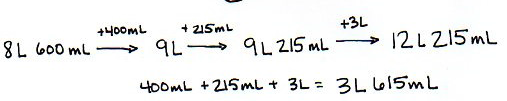 8L 600mL +400mL → 9L +215mL → 9L 215mL +3L → 12L 215mL
400mL + 215mL + 3L = 3L 615mL